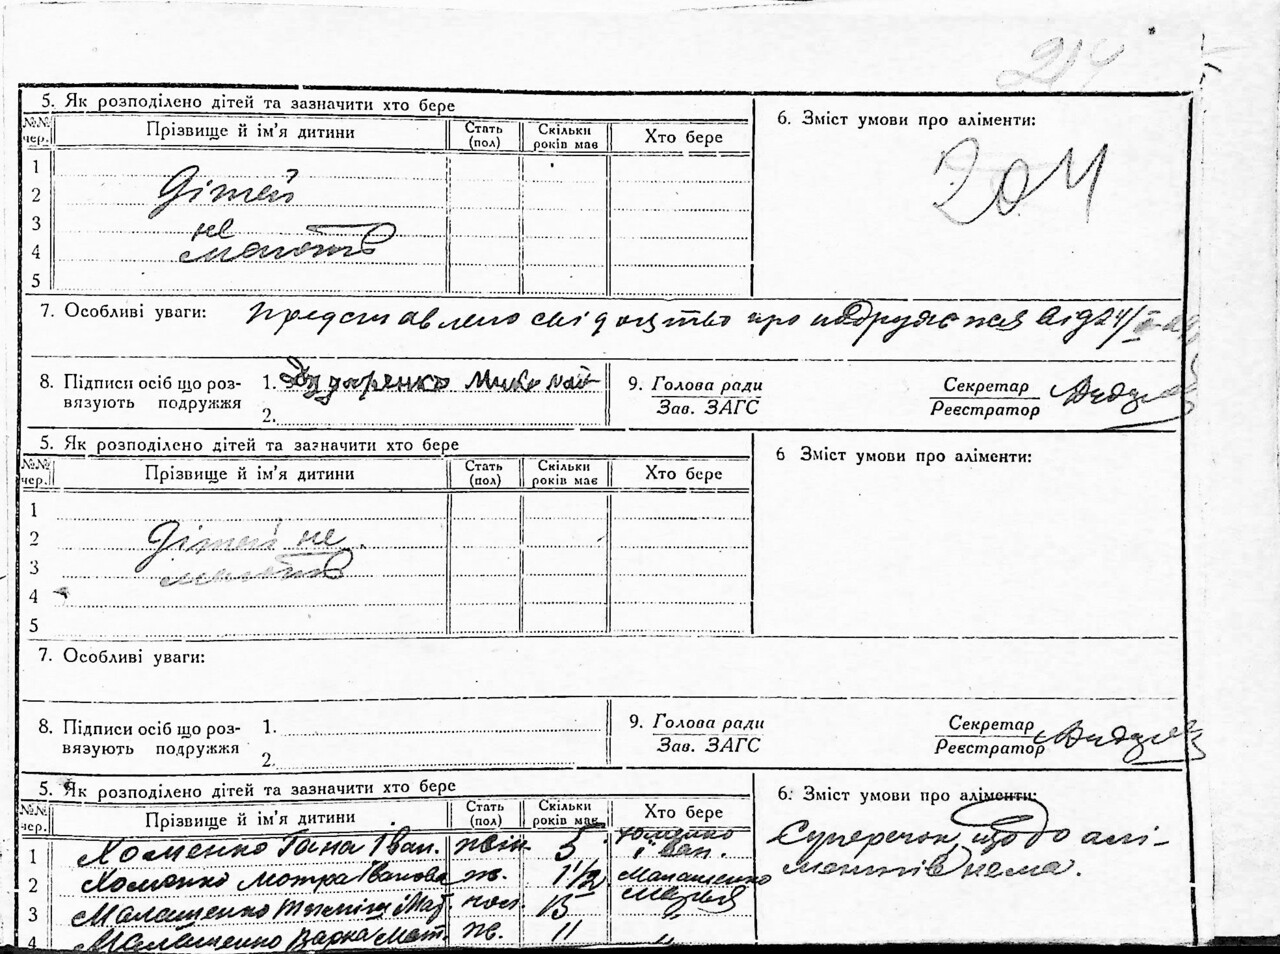 214
5. Як розподілено дітей та зазначити хто бере
№№ чер. Прізвище й ім'я дитини Стать (пол) Скільки років має Хто бере
6. Зміст умови про аліменти:
204
1
2 Дітей
3 не
4 мають
5
7. Особливі уваги: Представлено свідоцтво про від 24/
8. Підписи осіб що роз-
вязують подружжя
1. Микола
2.
9. Голова ради
Зав. ЗАГС
Секретар
Реєстратор
5. Як розподілено дітей та зазначити хто бере
№№ чер. Прізвище й ім'я дитини Стать (пол) Скільки років має Хто бере
6 Зміст умови про аліменти:
1
2 Дітей не
3 мають
4
5
7. Особливі уваги:
8. Підписи осіб що роз-
вязують подружжя
1.
2.
9. Голова ради
Зав. ЗАГС
Секретар
Реєстратор
5. Як розподілено дітей та зазначити хто бере
№№ чер. Прізвище й ім'я дитини Стать (пол) Скільки років має Хто бере
6. Зміст умови про аліменти:
Суперечок щодо алі-
ментів нема.
1 Хоменко Гана Іван. жін. 5 Хоменко Іван.
2 Хоменко Мотра Іванова ж. 1 1/2 Малашенко
3 Малашенко Мат. чол. 13 Марья
4 Малашенко Варка Мат. ж. 11 "